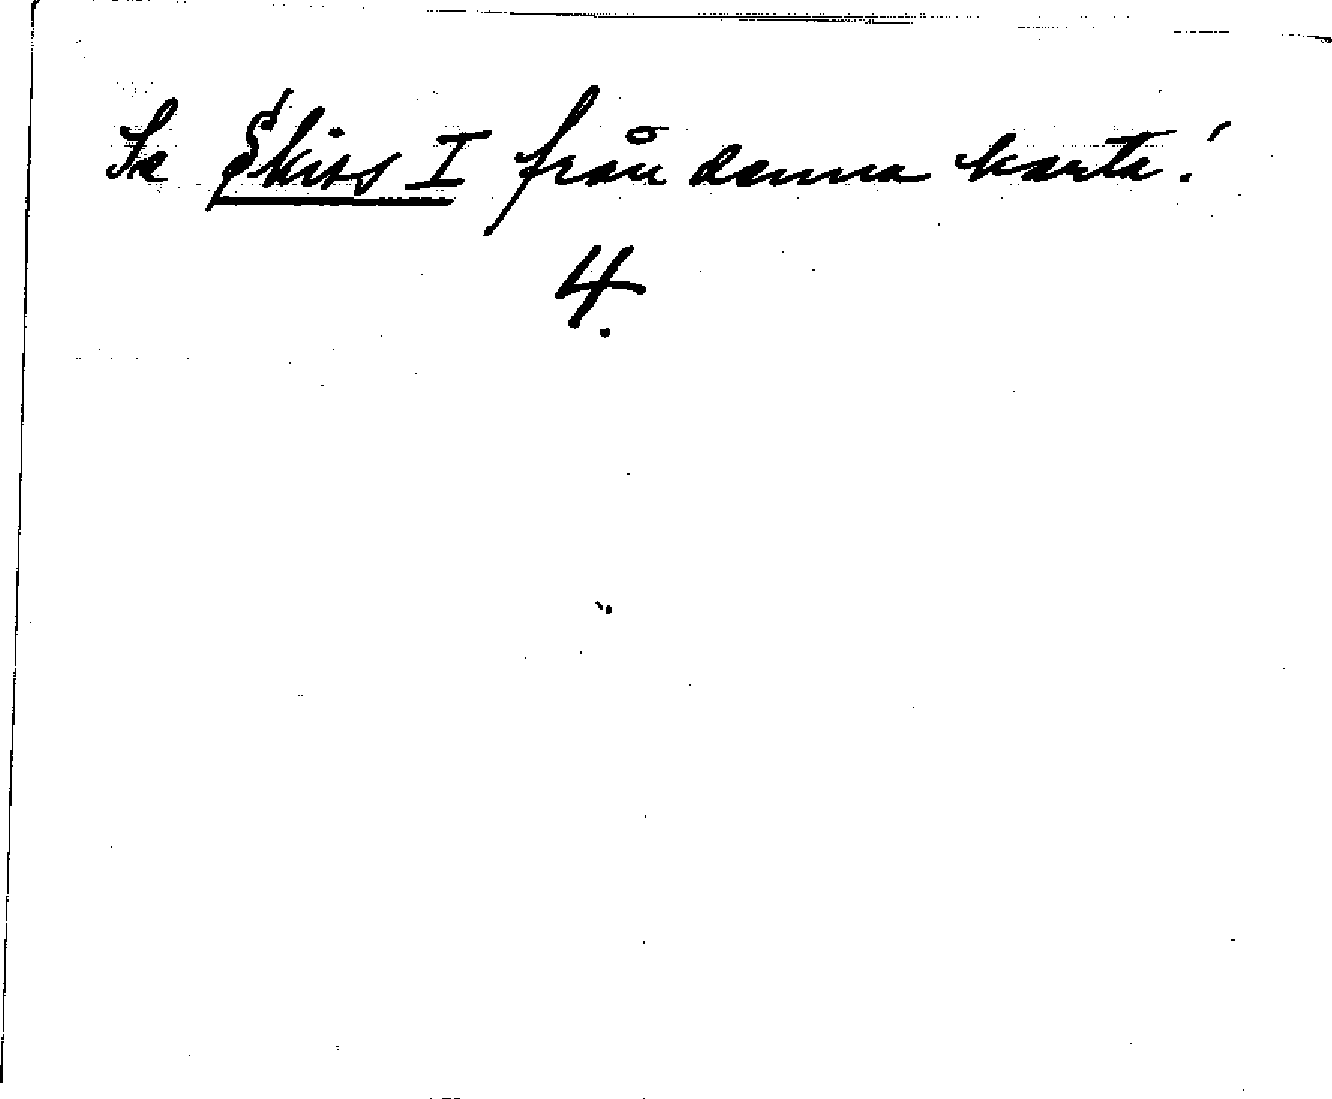 Se Skiss I från denna karta!
4.